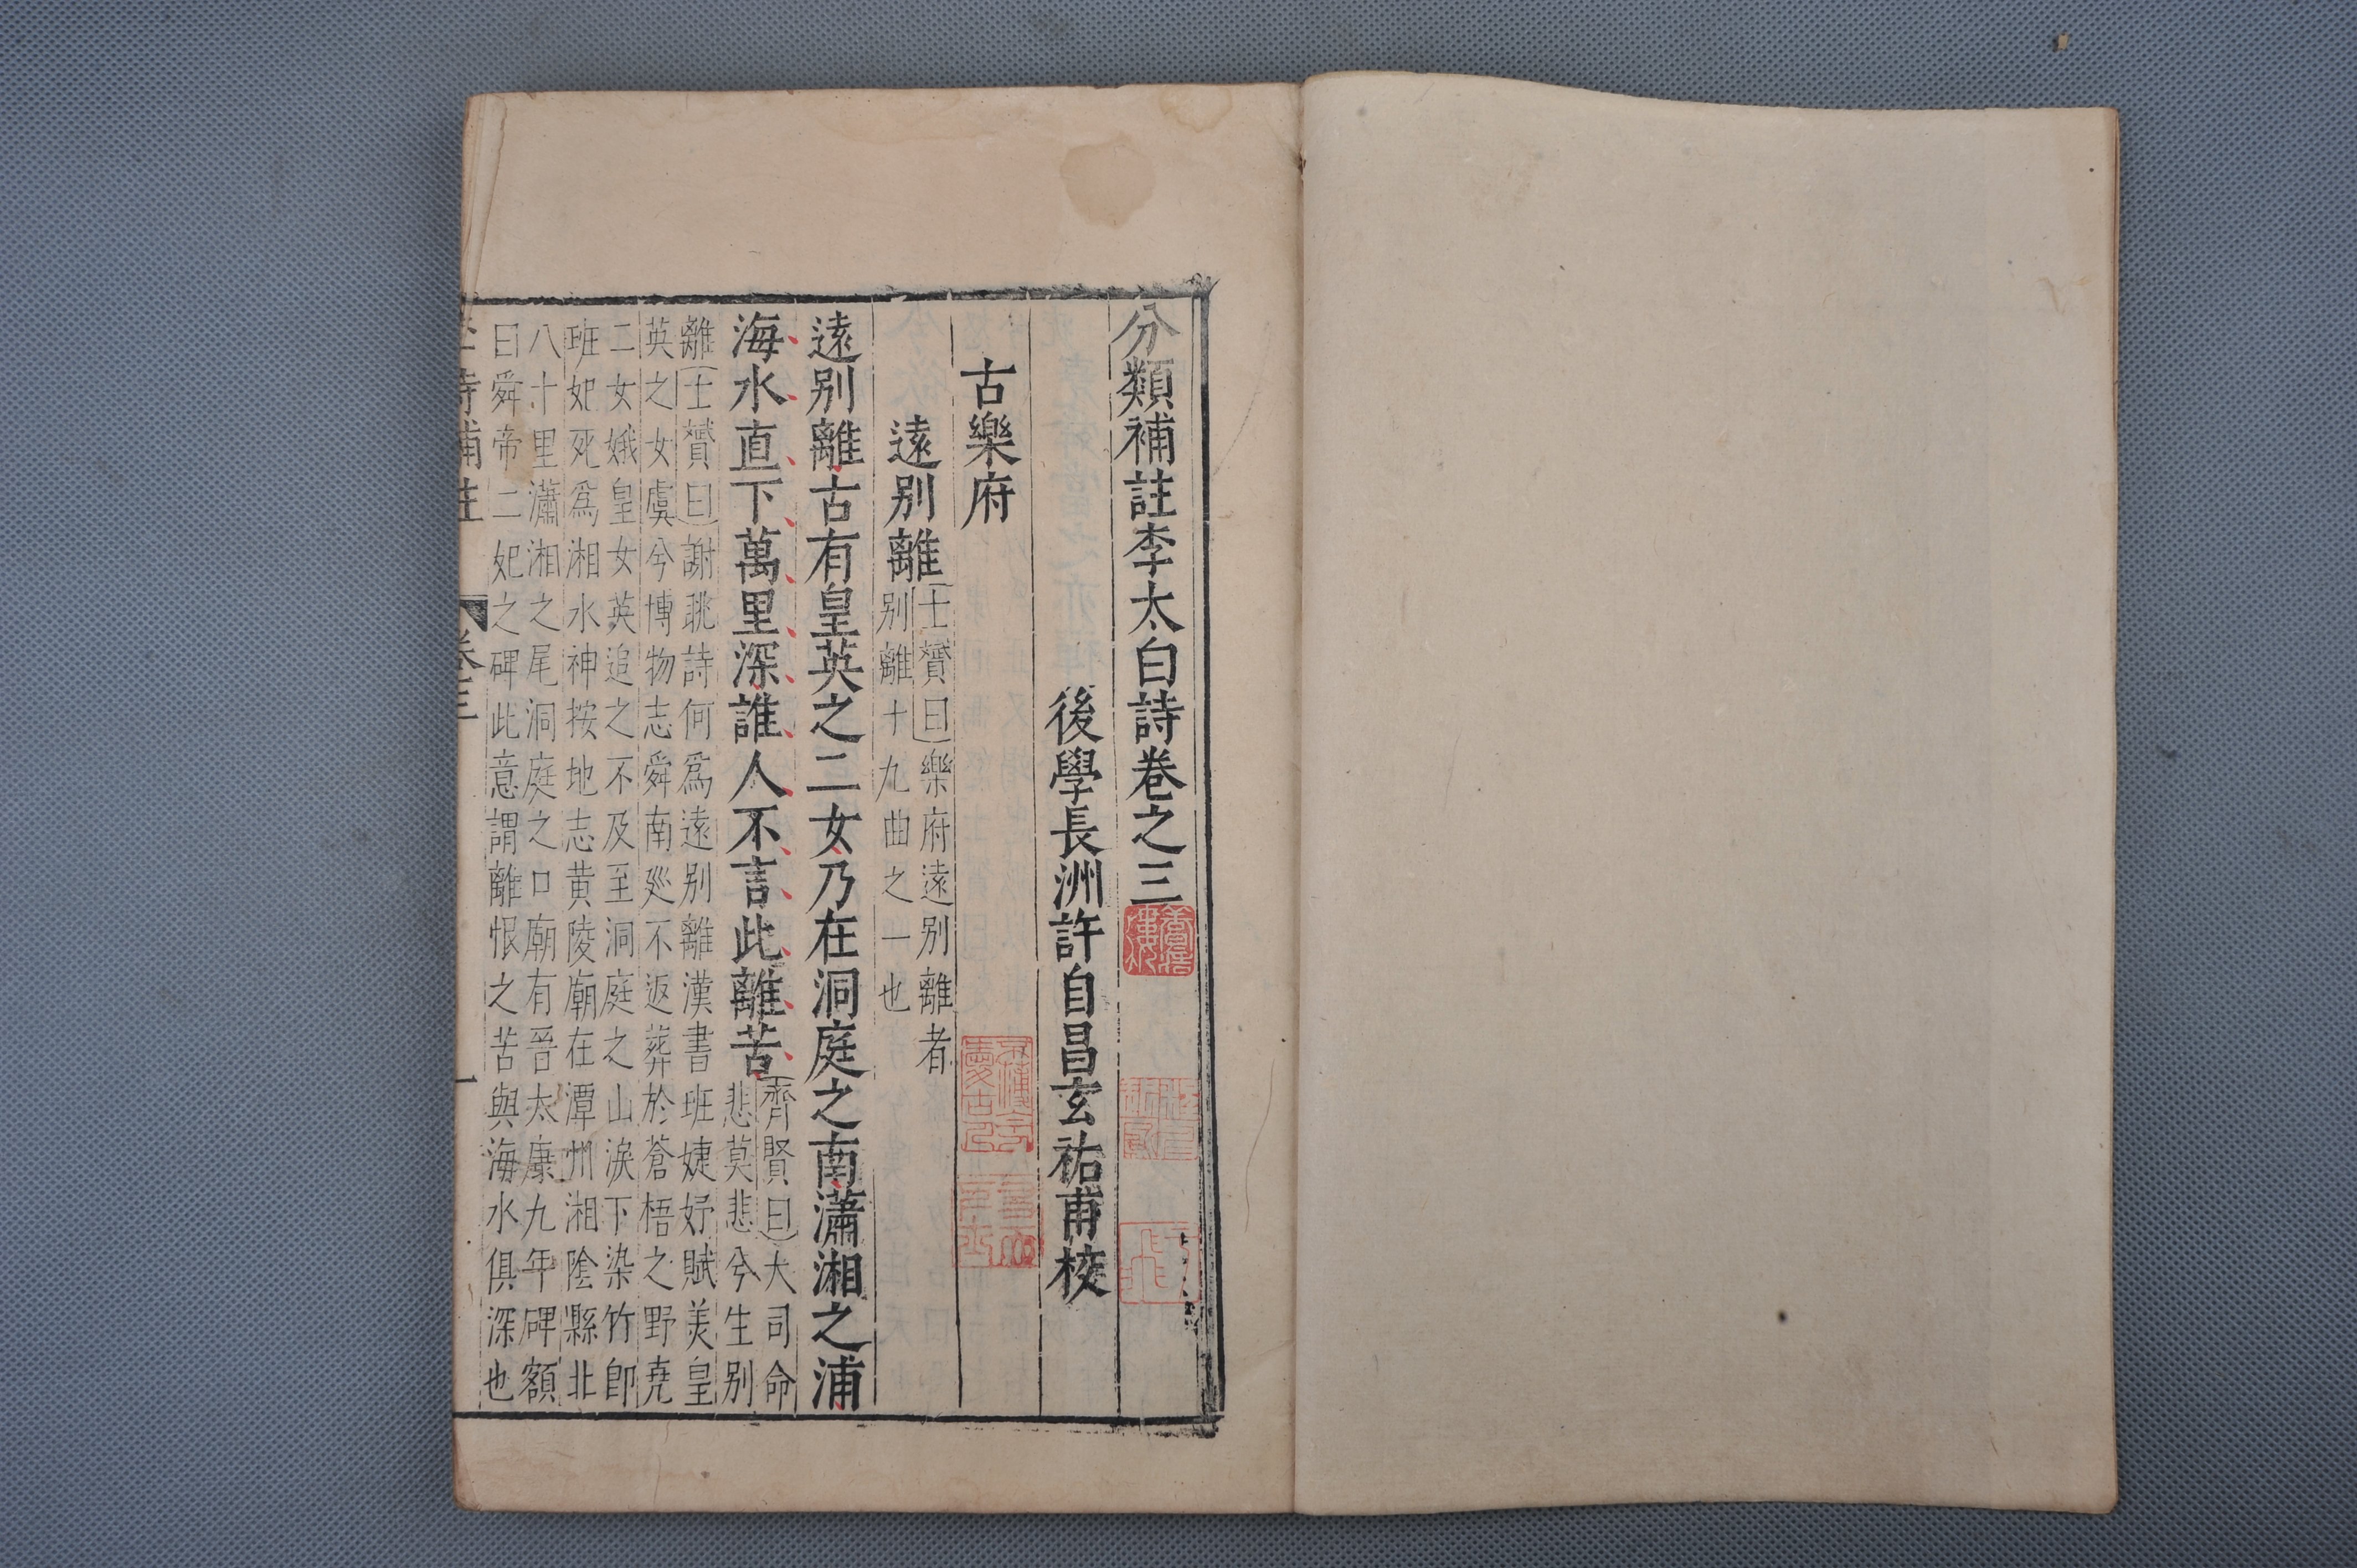 分類補註李太白詩卷之三
後學長洲許自昌玄祐甫校
古樂府
遠別離
士贇曰樂府遠別離者
別離十九曲之一也
遠別離古有皇英之二女乃在洞庭之南瀟湘之浦
海水直下萬里深誰人不言此離苦
齊賢曰大司命
悲莫悲兮生別
離士贇曰謝朓詩何爲遠別離漢書班婕妤賦美皇
英之女虞兮博物志舜南廵不返葬於蒼梧之野堯
二女娥皇女英追之不及至洞庭之山淚下染竹卽
班妃死爲湘水神按地志黄陵廟在潭州湘陰縣北
八十里瀟湘之尾洞庭之口廟有晉太康九年碑額
曰舜帝二妃之碑此意謂離恨之苦與海水俱深也
李詩補註
卷三
一